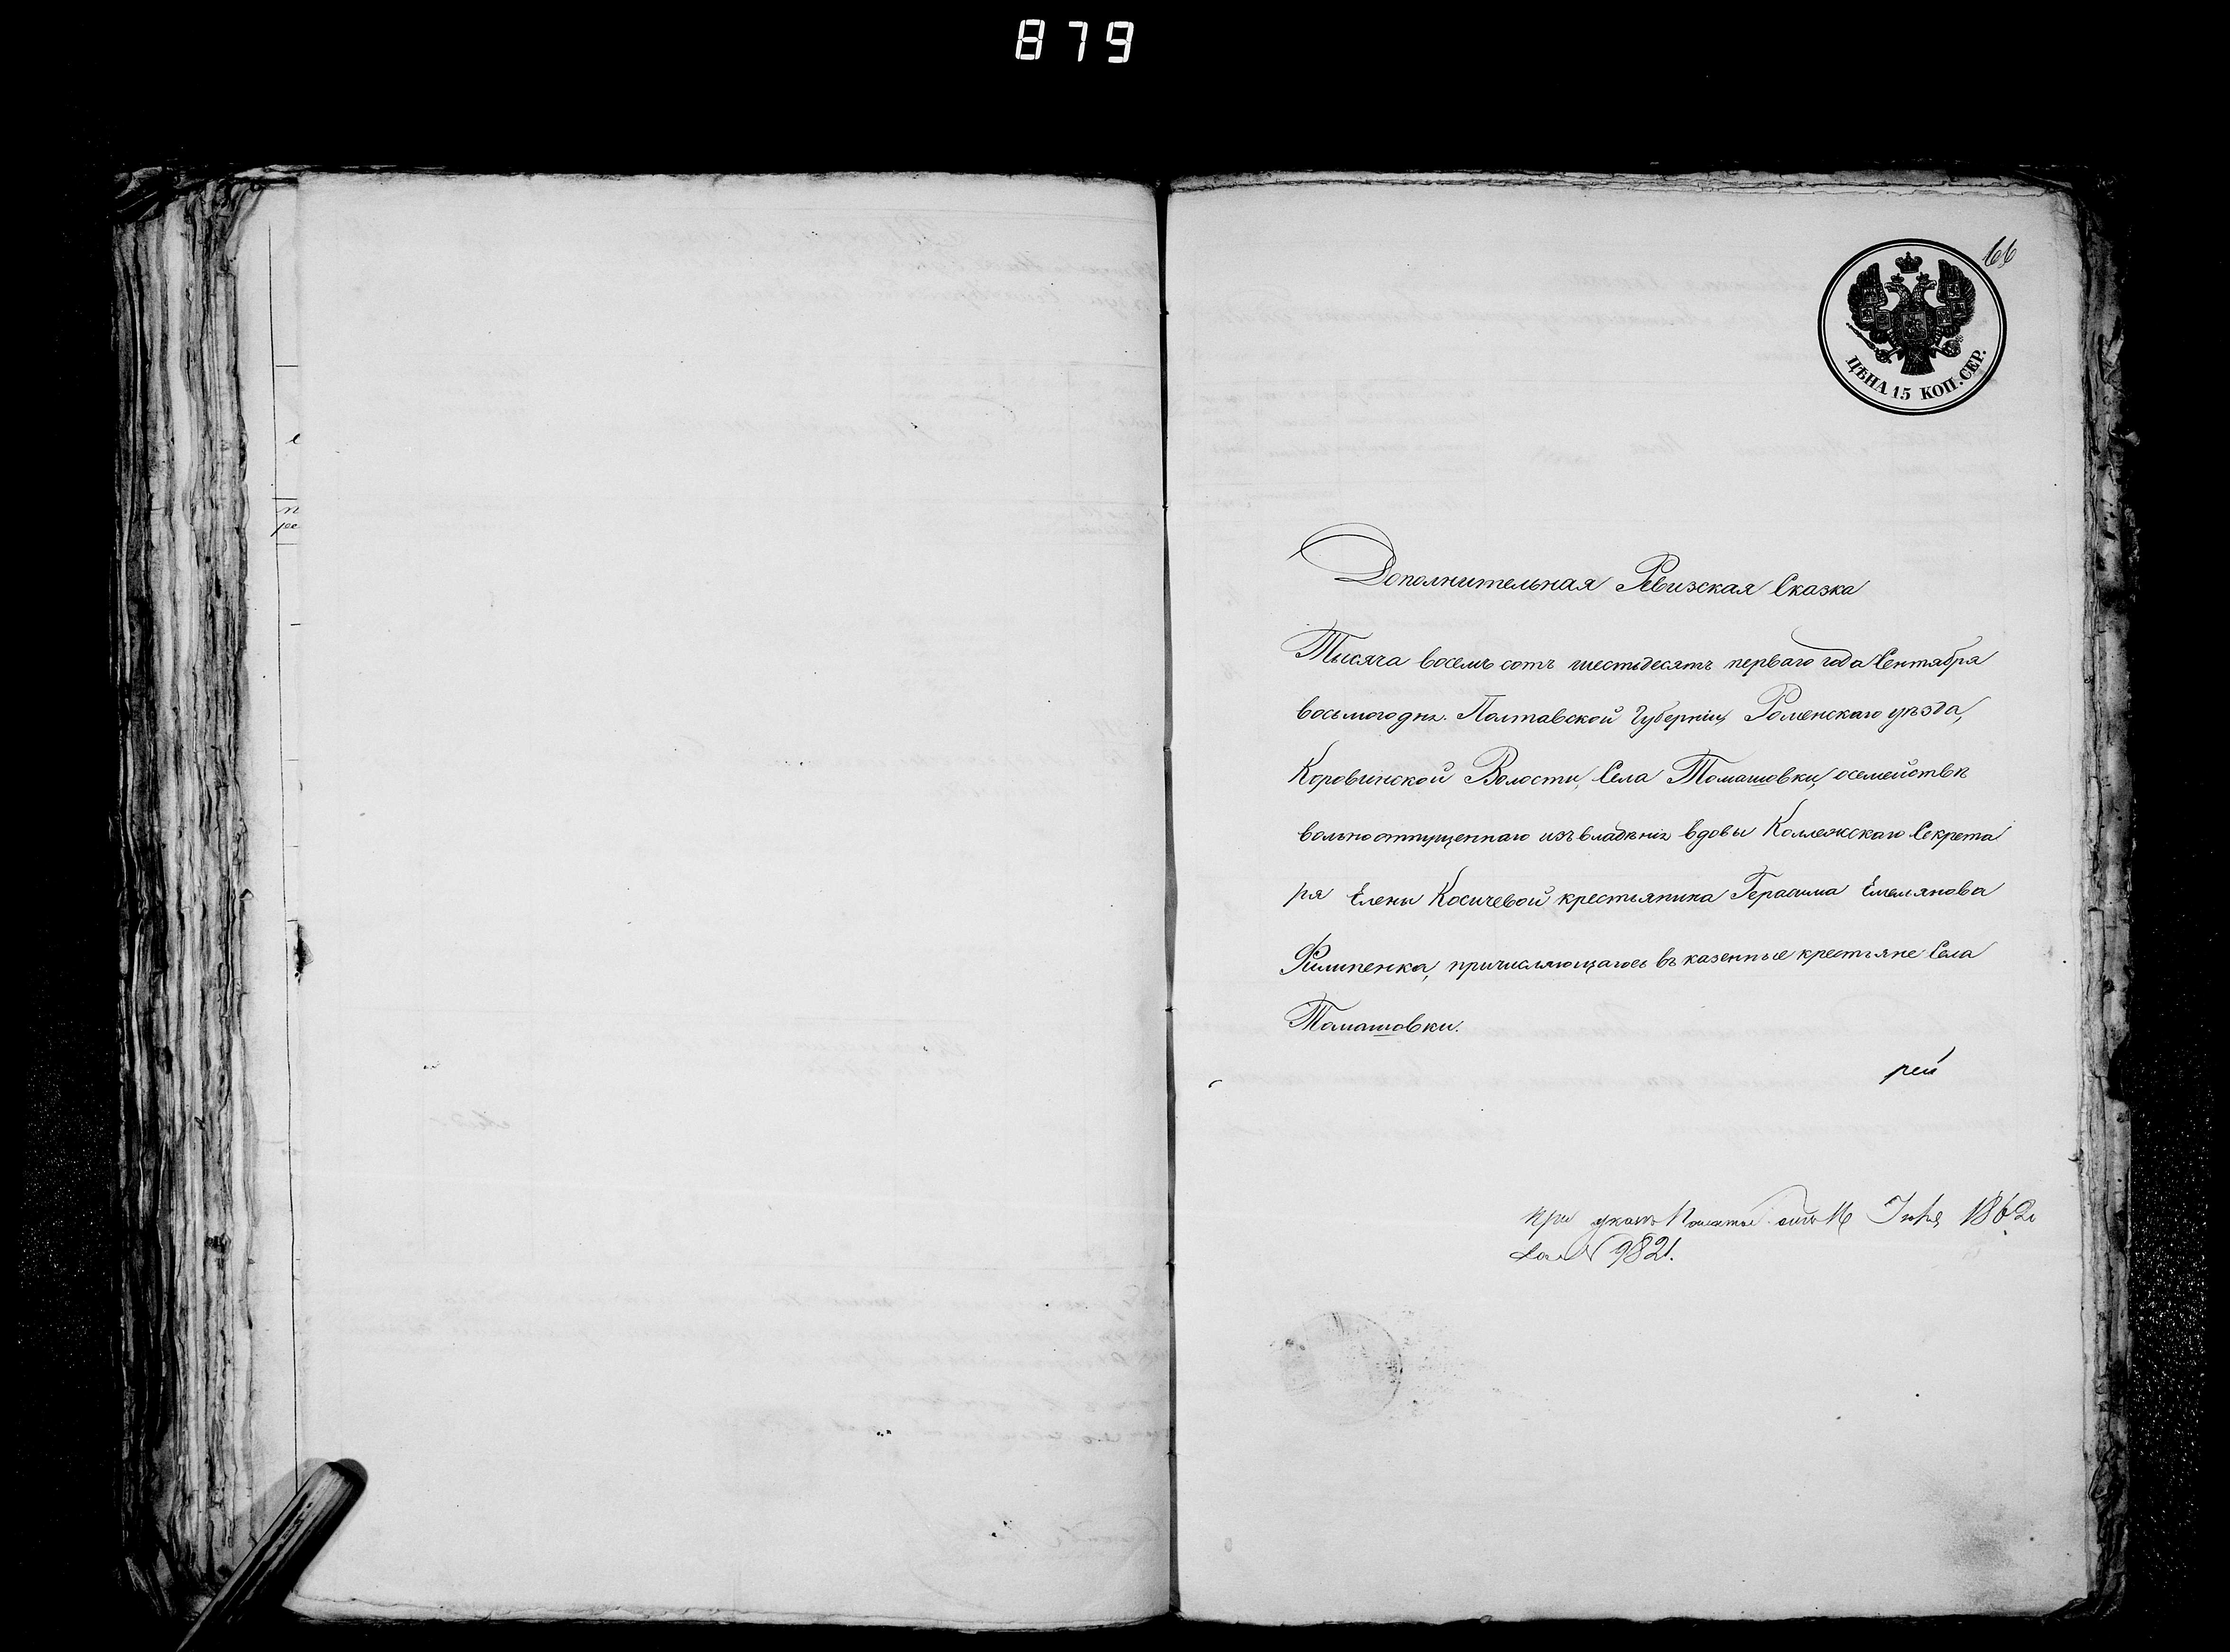 879
66
ЦѢНА 15 КОП. СЕР.
Дополнительная Ревизская Сказка
Тысяча восемь сотъ шестьдесятъ перваго года Сентября
восьмого дня. Полтавской Губерніи, Роменскаго уѣзда,
Коровинской Волости, Села Томашовки, о семействѣ
вольноотпущеннаго изъ владѣнія вдовы Коллежскаго Секрета
ря Елены Косичевой крестьянина Герасима Емельянова
Филипенка, причисляющагося въ казенные крестьяне Села
Томашовки.
рей
при указѣ Палаты отъ 16 1862
за N 9821.